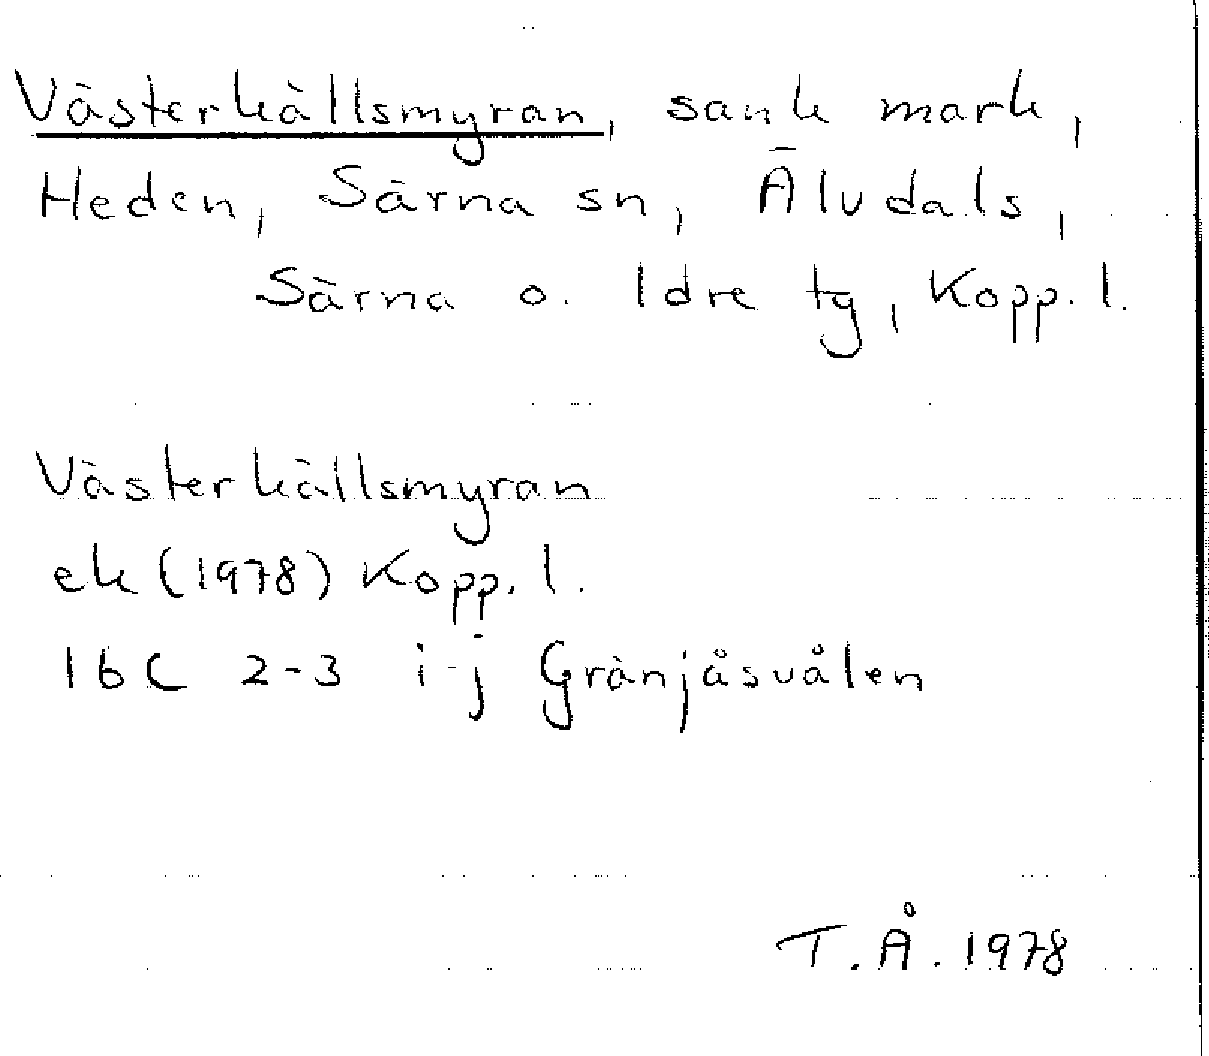 Västerkällsmyran, sank mark,
Heden, Särna sn, Älvdals,
Särna o. Idre tg, Kopp. l.
Västerkällsmyran
ek (1978) Kopp. l.
16C 2-3 i-j Gränjåsvålen
T.Å. 1978